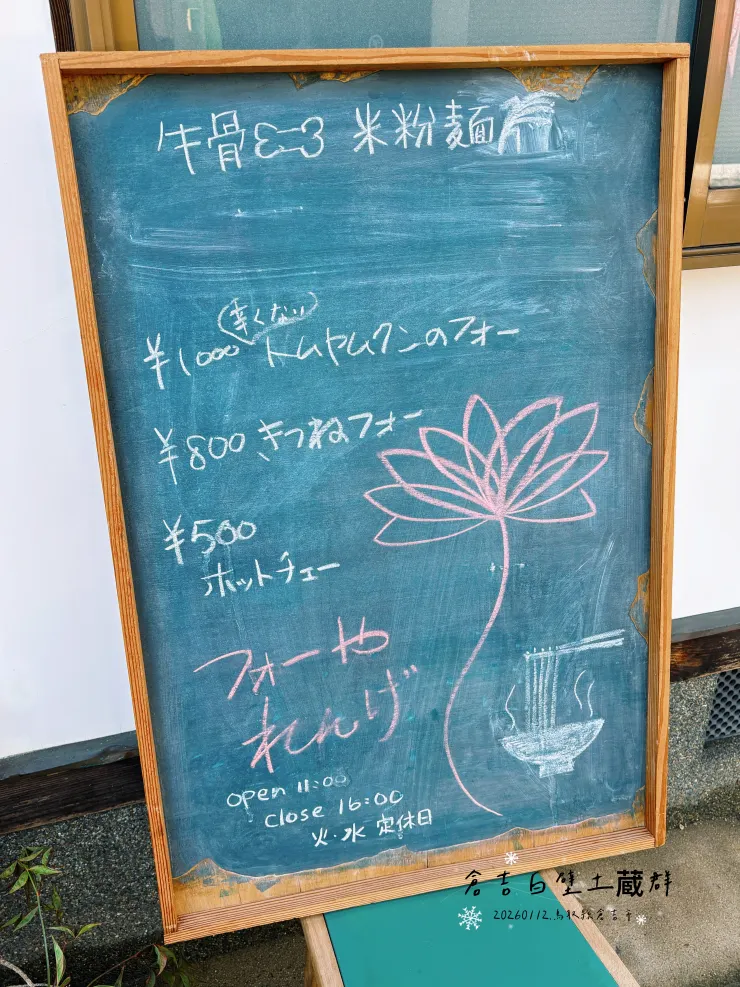 牛骨 米粉麺
(辛くない)
¥1000 トムヤムクンのフォー
¥800 きつねフォー
¥500
ホットチェー
フォーや
れんげ
open 11:00
close 16:00
火・水 定休日
倉吉白壁土蔵群
20260112.鳥取縣倉吉市